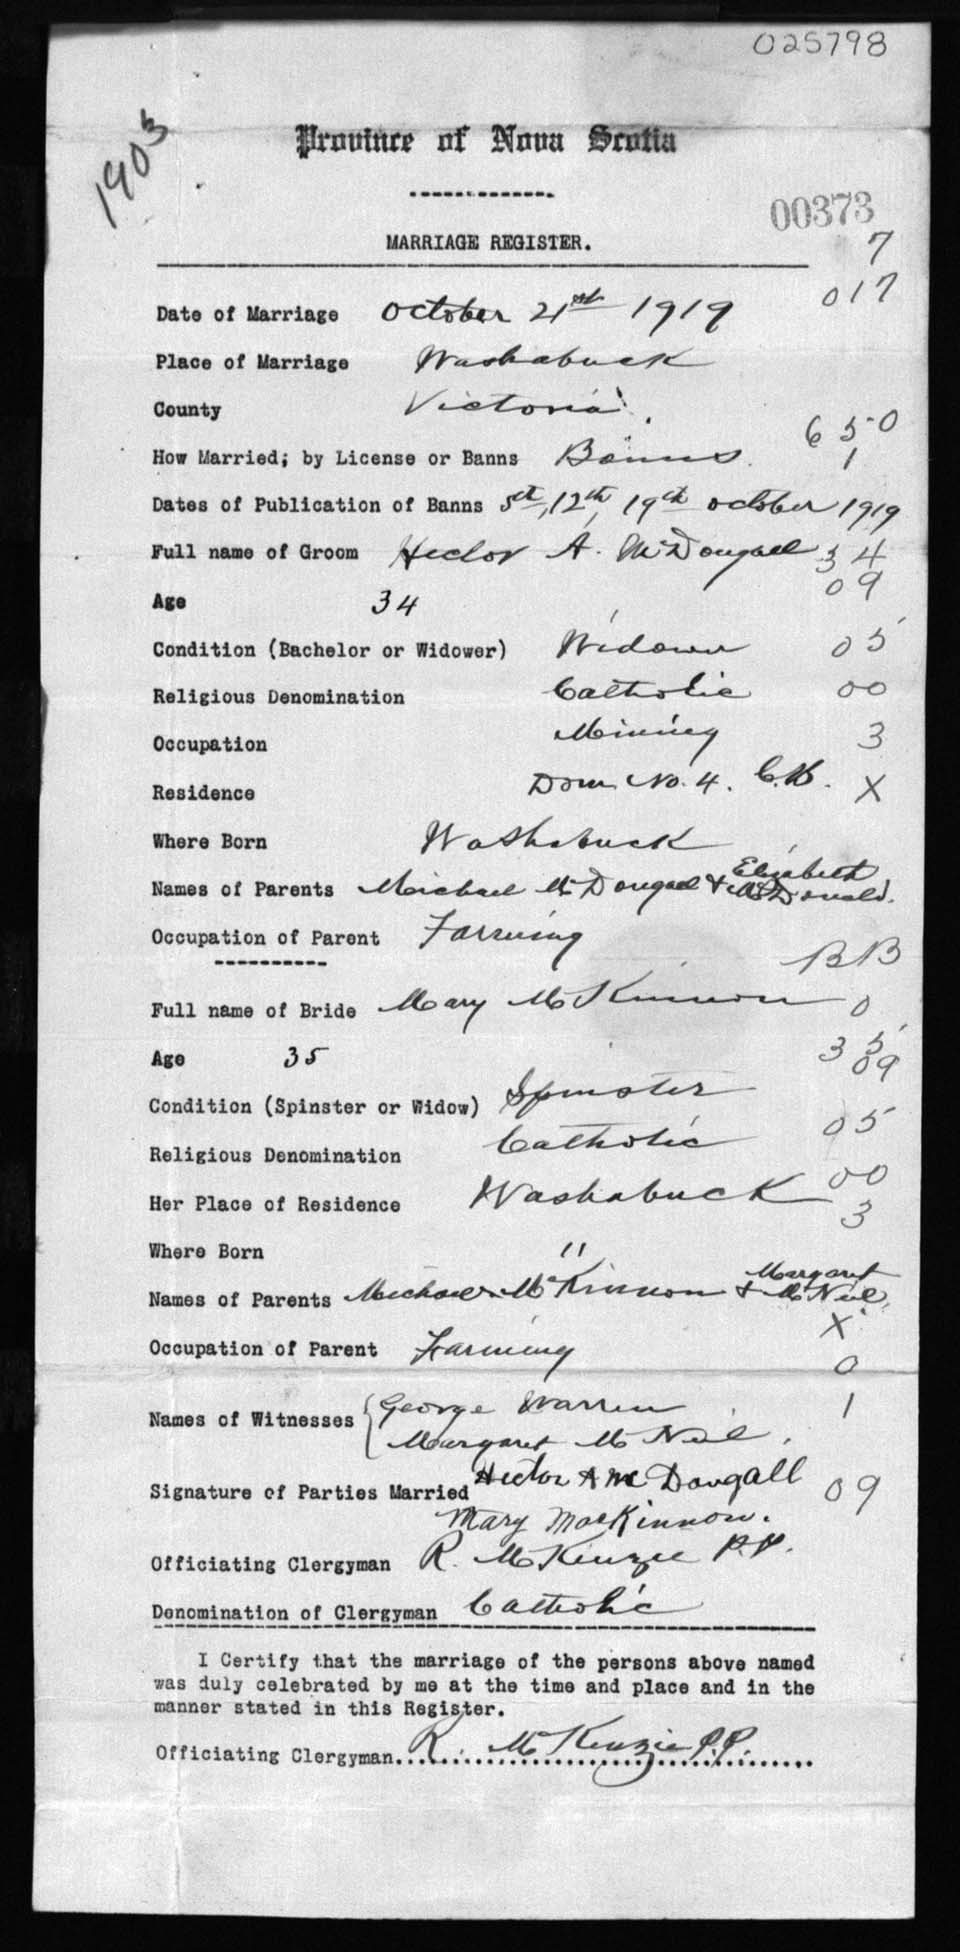 025798
1903
Province of Nova Scotia
00373
MARRIAGE REGISTER.
7
017
Date of Marriage October 21st 1919
Place of Marriage Washabuck
County Victoria
650
How Married; by License or Banns Banns
1
Dates of Publication of Banns 5th, 12th, 19th October 1919
Full name of Groom Hector A. McDougall 34
09
Age 34
Condition (Bachelor or Widower) Widower 05
Religious Denomination Catholic 00
Occupation Mining 3
Residence Dom No. 4. C.B. X
Where Born Washabuck
Names of Parents Michael McDougall & Elizabeth McDonald.
Occupation of Parent Farming
BB
Full name of Bride Mary McKinnon 0
35
Age 35 09
Condition (Spinster or Widow) Spinster
Religious Denomination Catholic 05
Her Place of Residence Washabuck 00
3
Where Born "
Names of Parents Michael McKinnon & Margaret McNeil,
X
Occupation of Parent Farming 0
Names of Witnesses George Warren 1
Margaret McNeil,
Signature of Parties Married Hector A McDougall 09
Mary MacKinnon.
Officiating Clergyman R. McKenzie P.P.
Denomination of Clergyman Catholic
I Certify that the marriage of the persons above named
was duly celebrated by me at the time and place and in the
manner stated in this Register.
Officiating Clergyman R. McKenzie P.P.